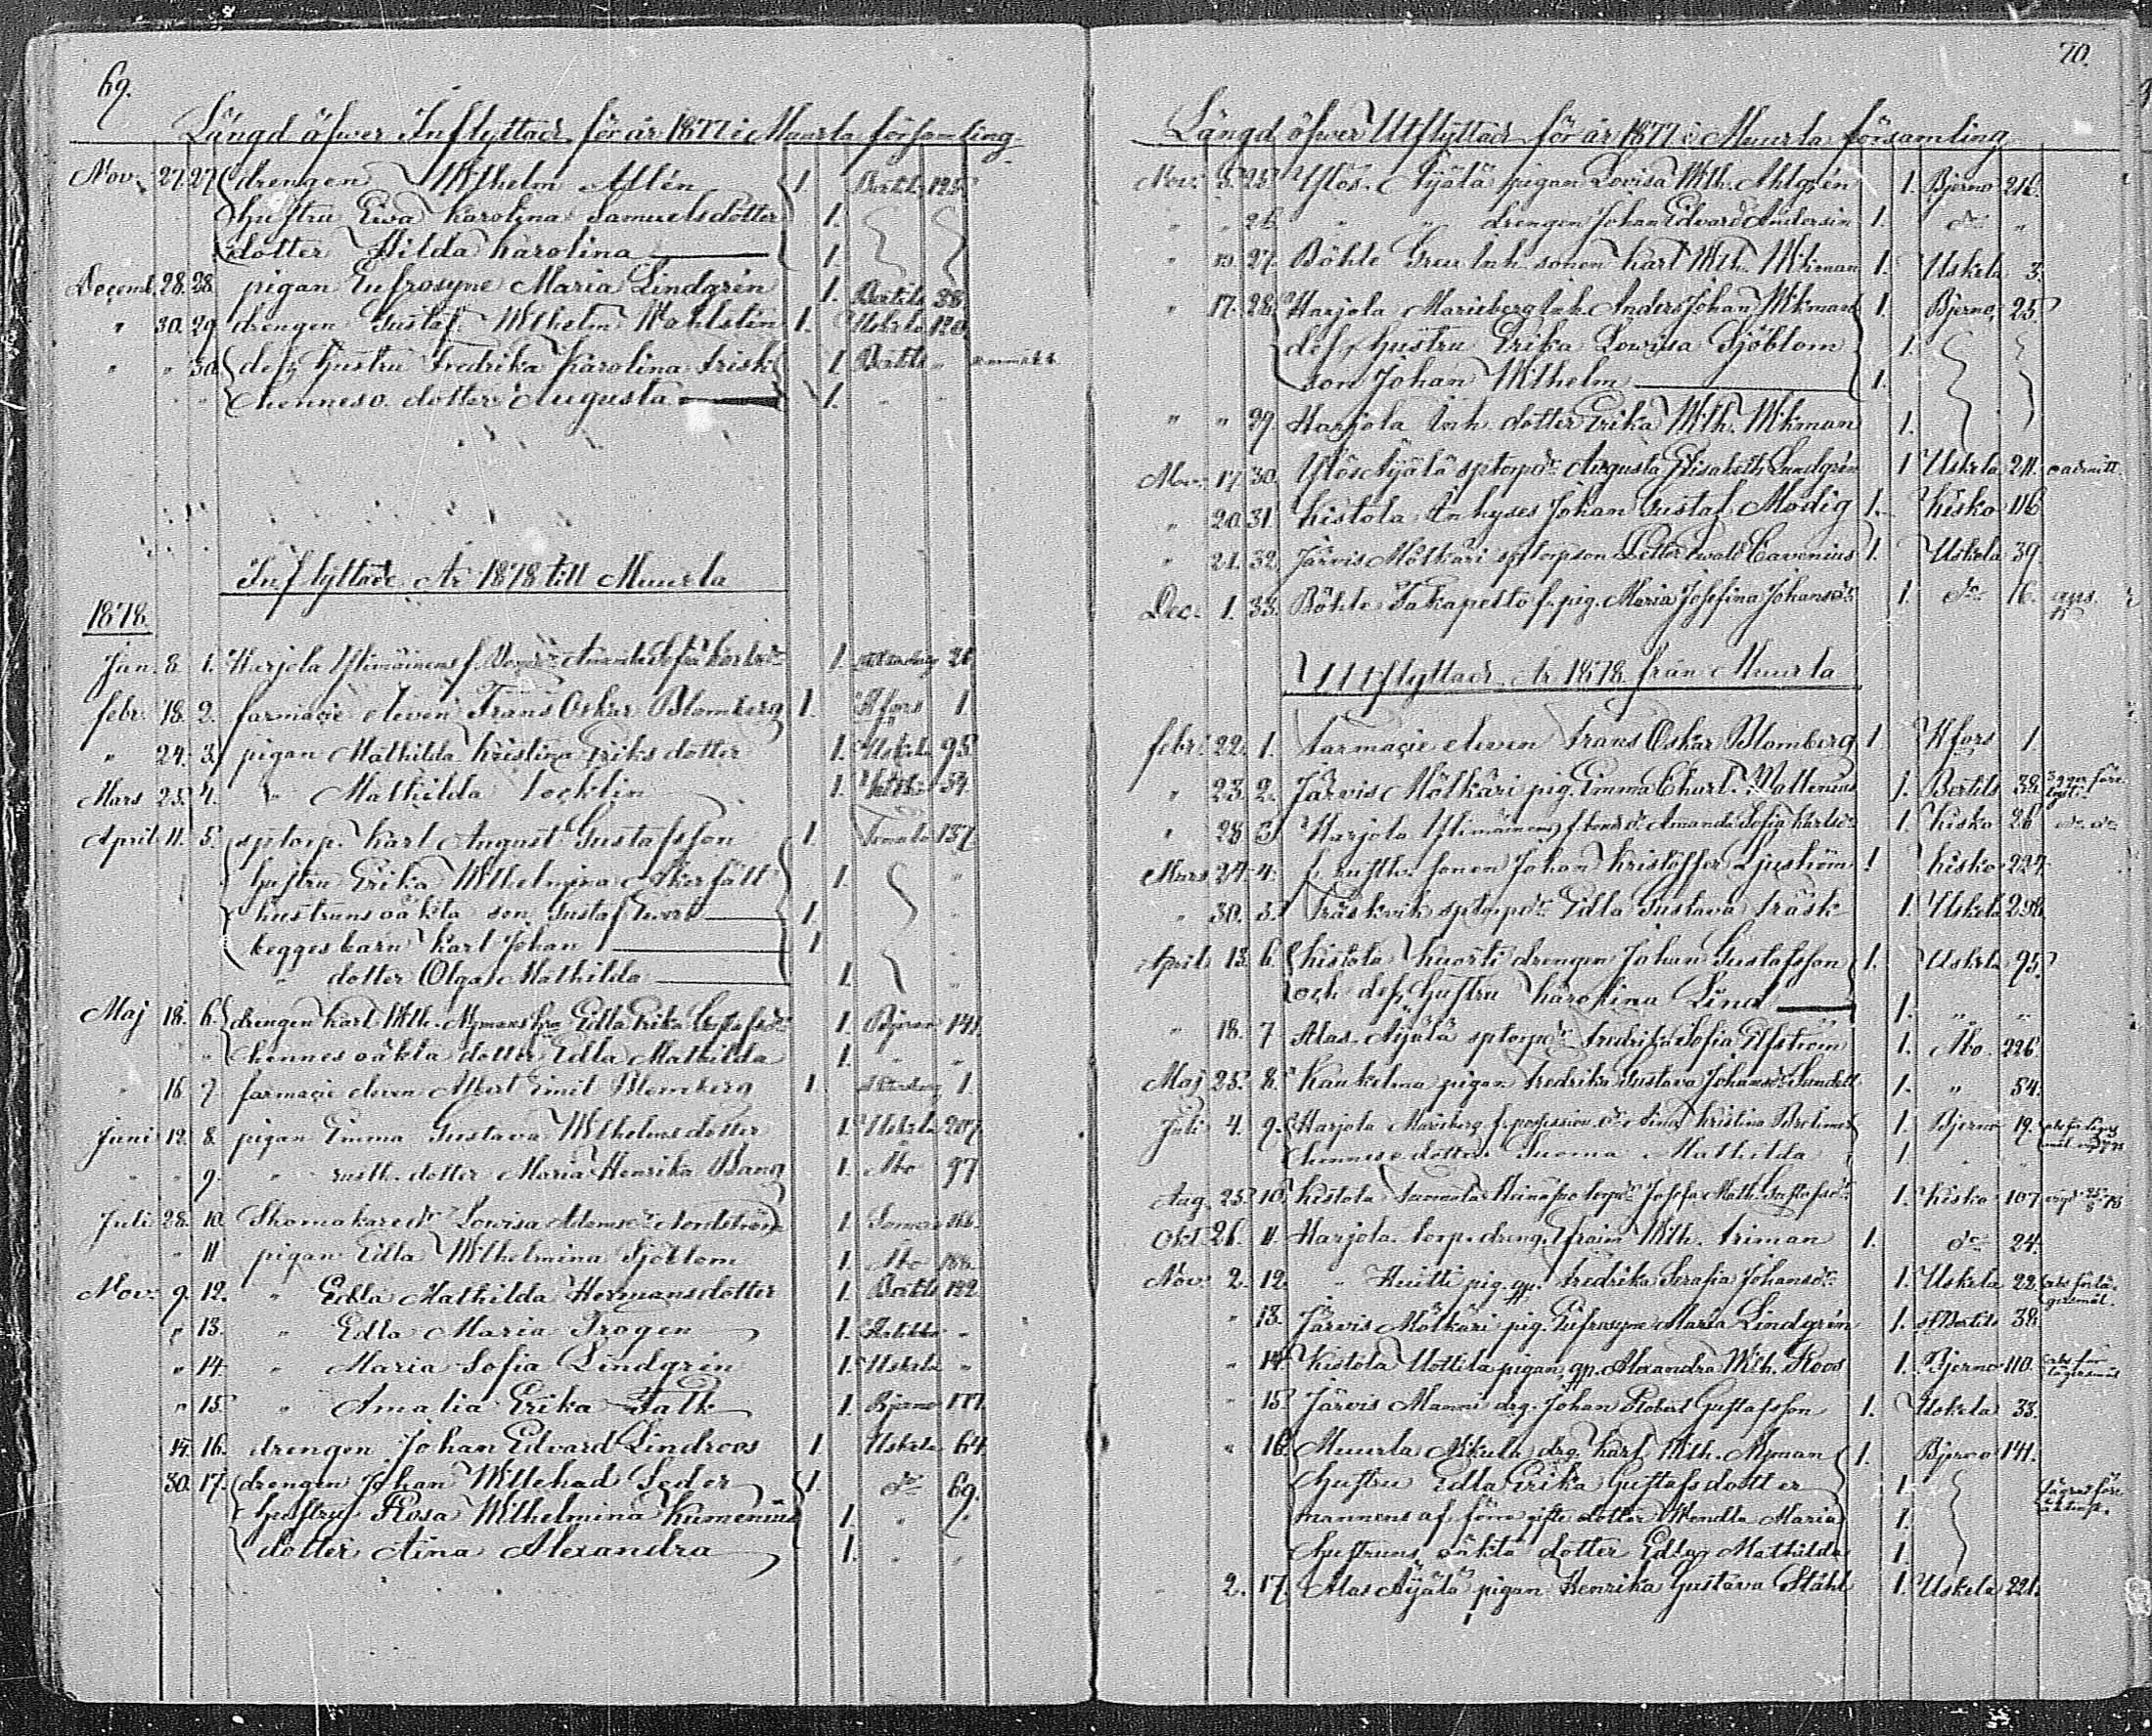 69.
Längd öfwer Inflyttade för år 1877 i Muurla församling
Nov. 27. 27. drengen Wilhelm Allén 1. Bertils 125
hustru Ewa Karolina Samuelsdotter 1.
dotter Hilda Karolina 1.
Decemb. 28. 28. pigan Eufrosyne Maria Lindgrén 1. Bertils 38
" 30. 29. drengen Gustaf Wilhelm Wahlstén 1. Uskela 120
" " 30. dess hustru Fredrika Karolina Frisk 1. Bertils "
hennes o. dotter Augusta 1. " "
Inflyttade År 1878 till Muurla
1878.
Jan. 8. 1. Harjola Ylimäinens f. Amanda Sofia Karlsdr 1. 26
febr. 18. 2. farmacie eleven Frans Oskar Blomberg 1. Hfors 1.
" 24. 3. pigan Mathilda Kristina Eriksdotter 1. Uskela 95
Mars 25. 4. " Mathilda Locklin 1. 54.
April 11. 5. sptorp. Karl August Gustafsson 1. 137
hustru Erika Wilhelmina Åkerfält 1. "
hustruns oäkta son Gustaf 1. "
begges barn Karl Johan 1 "
" dotter Olga Mathilda 1. "
Maj 18. 6. drengen Karl Wilh. Nymans hru Edla Erika Gustafsdr 1. Bjerno 141.
" hennes oäkta dotter Edla Mathilda 1. " "
" 16. 7. farmacie eleven Albert Emil Blomberg 1. 1.
Juni 12. 8. pigan Emma Gustava Wilhelmsdotter 1. Uskela 207
" " 9. " rusth. dotter Maria Henrika Bang 1. Åbo 97
Juli 28. 10. Skomakaredr Lowisa Adamsdr Nordström 1. Somero 166.
" 11 pigan Edla Wilhelmina Sjöblom 1. Åbo 188.
Nov. 9. 12. " Edla Mathilda Hermansdotter 1. Bertils 122
" 13. " Edla Maria Trogen 1. "
" 14. " Maria Sofia Lindgrén 1. Uskela "
" 15. " Amalia Erika Falk 1. Bjerno 177.
14. 16. drengen Johan Edvard Lindroos 1 Uskela 64
30. 17. drengen Johan Willehad Seder 1. do 69.
hustru Rosa Wilhelmina Kumenius 1. " "
dotter Aina Alexandra 1. " "
70.
Längd öfwer Utflyttade för år 1877 i Muurla församling
Nov. 5. 25. Ylös. Äijälä pigan Lovisa Wilh. Ahlgrén 1. Bjerno 216.
" " 26. " " drengen Johan Edvard Andersin 1. do "
" 10. 27. Böhle Greu Inh. sonen Karl Wilh. Wikman 1. Uskela 3.
" 17. 28. Harjola Marieberg Inh. Anders Johan Wikman 1. Bjerno, 25
dess hustru Erika Lowisa Sjöblom 1.
son Johan Wilhelm 1.
" " 29. Harjola Inh dotter Erika Wilh. Wikman 1.
Nov. 17. 30. Ylös Äijälä sptorpdr Augusta Elisabeth Lundgrén 1 Uskela 211. oadmitt.
" 20. 31. Kistola Inhyses Johan Gustaf Modig 1. Kisko 116
" 21. 32. Järvis Mölkäri sptorpson Ewald Cavenius 1. Uskela 39
Dec. 1. 33. Böhle Takapelto f. pig. Maria Josefina Johansdr 1. do 16.
Utflyttade År 1878 från Muurla
febr. 22. 1. farmacie eleven Frans Oskar Blomberg 1 Hfors 1
" 23. 2. Järvis Mölkäri pig. Emma Charl. Wallenius 1. Bertils 38.
" 28. 3. Harjola Ylimäinens f. bondr Amanda Sofia Karlsdr 1. Kisko 26 do do
Mars 24. 4. sonen Johan Kristoffer Ljuström 1 Kisko 222.
" 30. 5. Träskvik sptorpdr Edla Gustava Träsk 1. Uskela 298.
April 13. 6. Kistola Kuorti drengen Johan Gustafsson 1. Uskela 95
och dess hustru Karolina Lind 1. " "
" 18. 7 Alas. Äijälä sptorpdr Fredrika Sofia Elfström 1. Åbo. 226
Maj 25. 8. Kaukelma pigan Fredrika Gustava Johansdr Sundell 1. " 54.
Juli 4. 9. Harjola Marieberg f. profession. dr Aina Kristina 1. Bjerno 19.
hennes o. dotter Suoma Mathilda 1.
Aug. 25. 10. Kistola Josefa Math. Gustafsdr 1. Kisko 107
Okt. 26. 11. Harjola torp. dreng. Efraim Wilh. Friman 1. do 24.
Nov. 2. 12. " Huitti pig. qp. Fredrika Serafia Johansdr 1. Uskela 22.
" 13. Järvis Mölkäri pig. Eufrosyne Maria Lindgrén 1. St Bertils 38.
" 14. Kistola Uottila pigan, qp. Alexandra Wilh. Roos 1. Bjerno 110.
" 15. Järvis Manni drg. Johan Robert Gustafsson 1. Uskela 33.
" 16. Muurla Nikula drg. Karl Wilh. Nyman 1. Bjerno 141.
hustru Edla Erika Gustafsdotter 1.
mannens af förra gifte dotter Wendla Maria 1.
hustruns oäkta dotter Edla Mathilda 1.
2. 17. Alas Äijälä pigan Henrika Gustava Ståhl 1. Uskela 221.